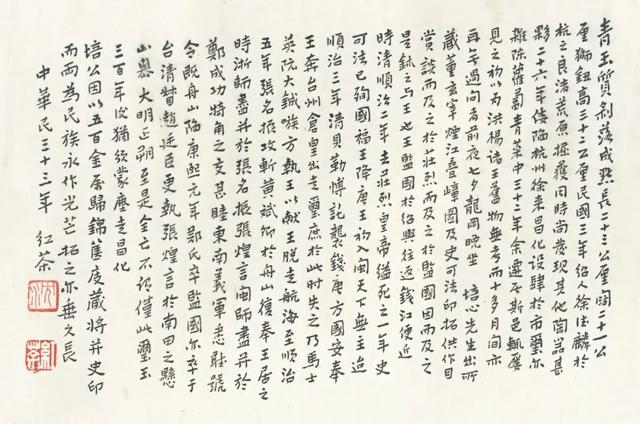 青玉質剝落成點長二十三公厘闊二十一公
厘獅鈕高三十三公厘民國三年紹人徐德麟於
杭之良渚荒原掘獲同時尚發現其他陶器甚
夥二十六年倭陷杭州徐來昌化設肆於市璽亦
雜陳蘿蔔青菜中三十二年余遯居斯邑輒屢
見之初以為洪楊諸王舊物無考而十多月間亦
再無過問者前夜七夕龍岡晚坐 培心先生出所
藏董玄宰煙江疊嶂圖及史可法印拓供作目
賞談而及之於壯烈而及之於監國因而及之
是鈢之与王也王監國於紹興往返錢江便近
時清順治二年去壯烈皇帝縊死之一年史
可法已殉國福王降唐王初入閩天下無主迨
順治三年清貝勒博託襲錢唐方國安奉
王奔台州倉皇出走璽庶於此時失之乃馬士
英阮大鋮嗾方執王以獻王脫走航海至順治
五年張名振攻斬黃斌卿於舟山復奉王居之
時浙師盡并於張名振張煌言閩師盡并於
鄭成功犄角之交甚睦東南義軍悉聽號
令既舟山陷康熙元年鄭氏卒監國亦卒于
台清督趙廷臣更執張煌言於南田之懸
山嶴大明正朔至是全亡不徒僅此璽玉
三百年後猶欲蒙塵走昌化
培公因以五百金屬歸錦篋庋藏將并史印
而兩為民族永作光芒拓之亦垂久長
中華民三十三年 紅茶